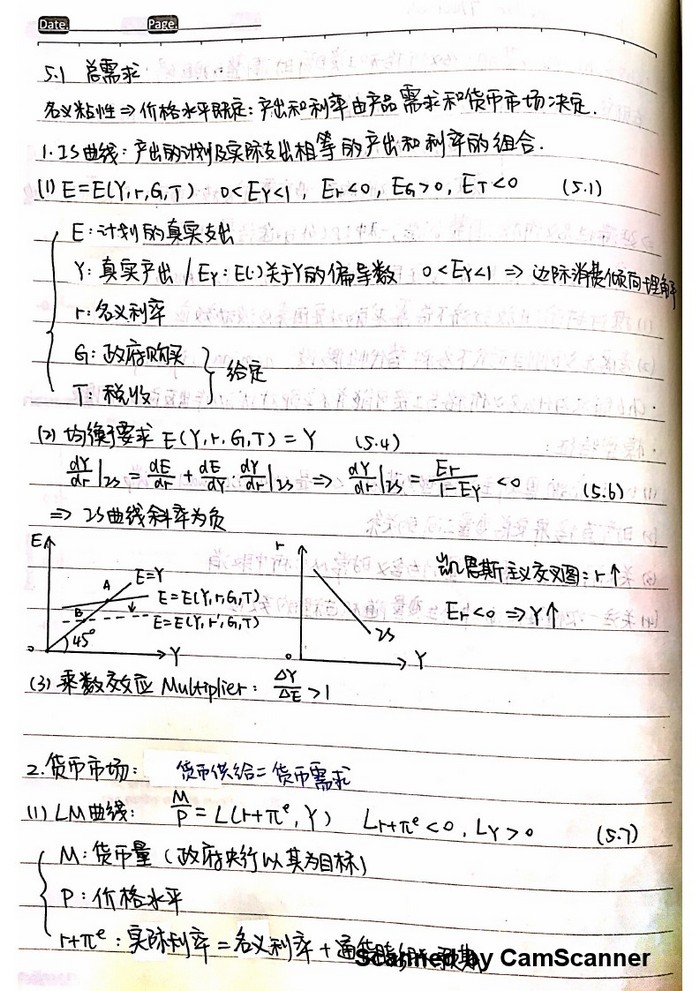 Date. Page.
5.1 总需求
名义粘性 ⇒ 价格水平既定：产出和利率由产品需求和货币市场决定.
1. IS曲线：产出的计划及实际支出相等的产出和利率的组合.
(1) E=E(Y,r,G,T) 0<E_Y<1, E_r<0, E_G>0, E_T<0 (5.1)
E：计划的真实支出
Y：真实产出 / E_Y：E(·)关于Y的偏导数 0<E_Y<1 ⇒ 边际消费倾向理解
r：名义利率
G：政府购买
T：税收
给定
(2) 均衡要求 E(Y,r,G,T)=Y (5.4)
dY/dr|IS = dE/dr + dE/dY · dY/dr|IS ⇒ dY/dr|IS = E_r/(1-E_Y) <0 (5.6)
⇒ IS曲线斜率为负
E A B E=Y E=E(Y,r,G,T) E=E(Y,r',G,T) 45° 0 Y
r IS 0 Y
凯恩斯主义交叉图：r↑
E_r<0 ⇒ Y↑
(3) 乘数效应 Multiplier： ΔY/ΔE >1
2. 货币市场： 货币供给=货币需求
(1) LM曲线： M/P = L(r+π^e, Y) L_{r+π^e}<0, L_Y>0 (5.7)
M：货币量（政府央行以其为目标）
P：价格水平
r+π^e：实际利率=名义利率+通货膨胀预期
Scanned by CamScanner